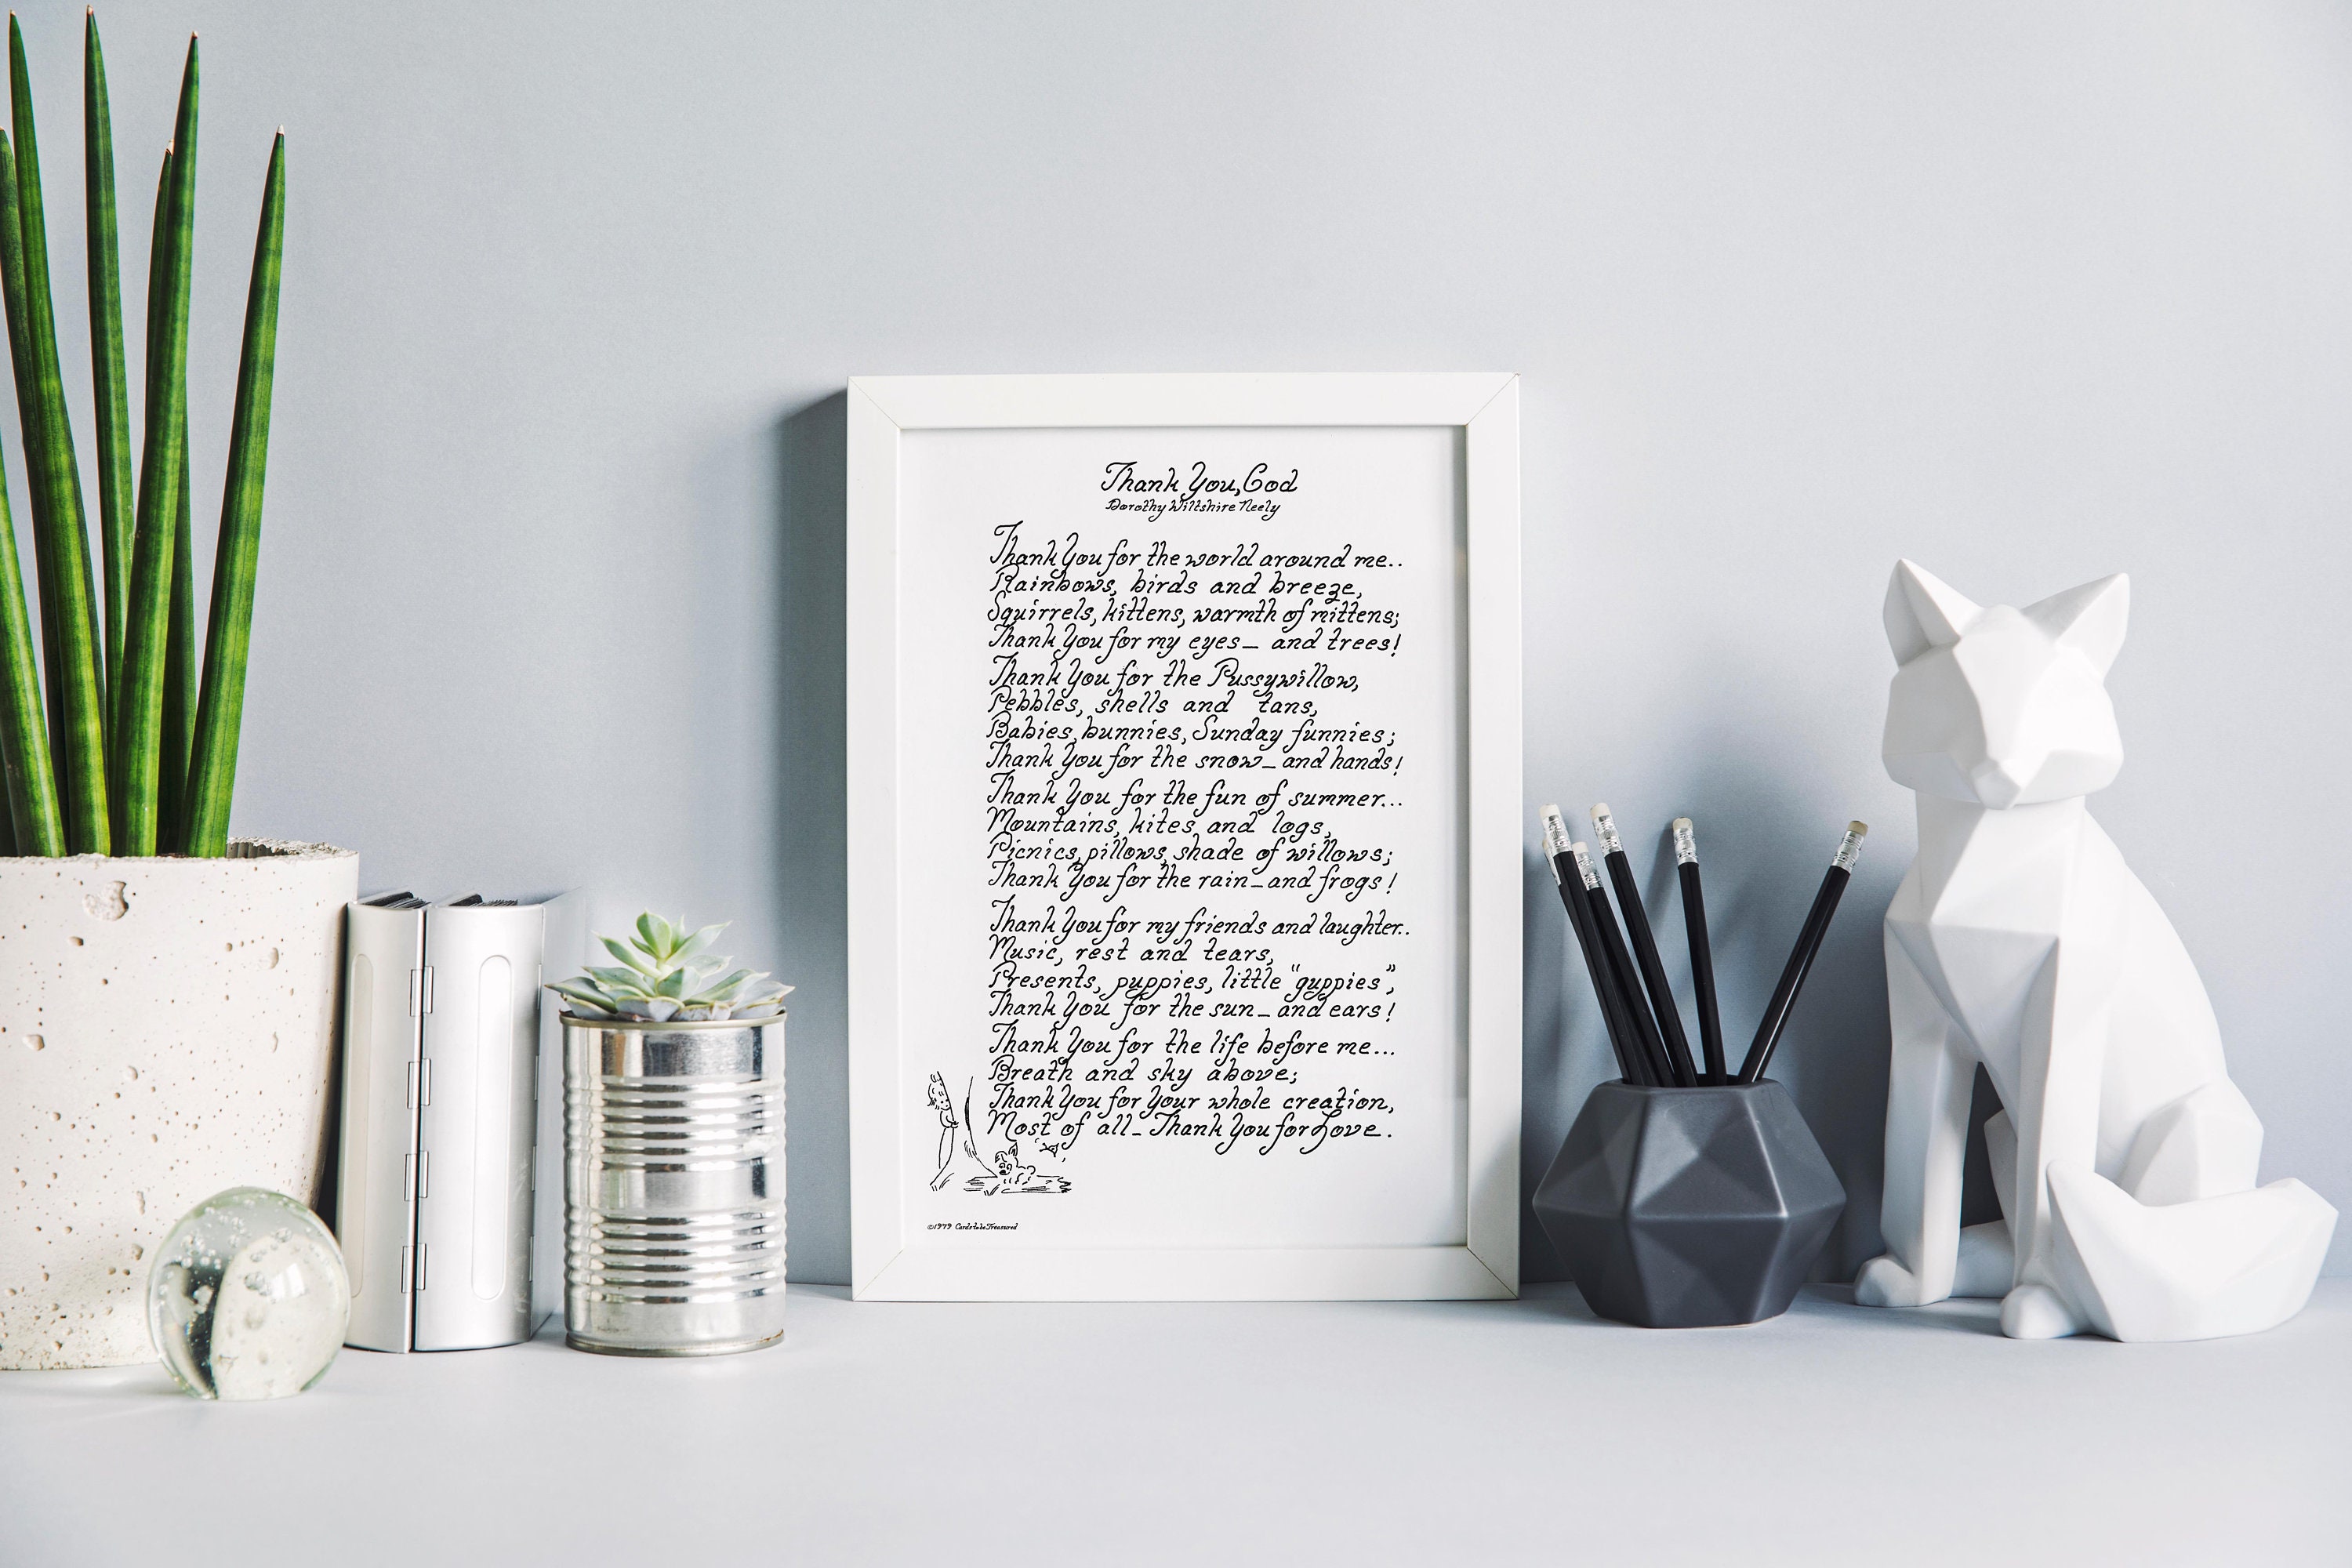 Thank You, God
Dorothy Wiltshire Neely
Thank You for the world around me..
Rainbows, birds and breeze,
Squirrels, kittens, warmth of mittens;
Thank You for my eyes_ and trees!
Thank You for the Pussywillow,
Pebbles, shells and tans,
Babies, bunnies, Sunday funnies;
Thank You for the snow_ and hands!
Thank You for the fun of summer...
Mountains, kites, and logs,
Picnics, pillows, shade of willows;
Thank You for the rain_ and frogs!
Thank You for my friends and laughter..
Music, rest and tears,
Presents, puppies, little "guppies",
Thank You for the sun_ and ears!
Thank You for the life before me...
Breath and sky above;
Thank You for Your whole creation,
Most of all_ Thank You for Love.
©1979 Cards to be Treasured